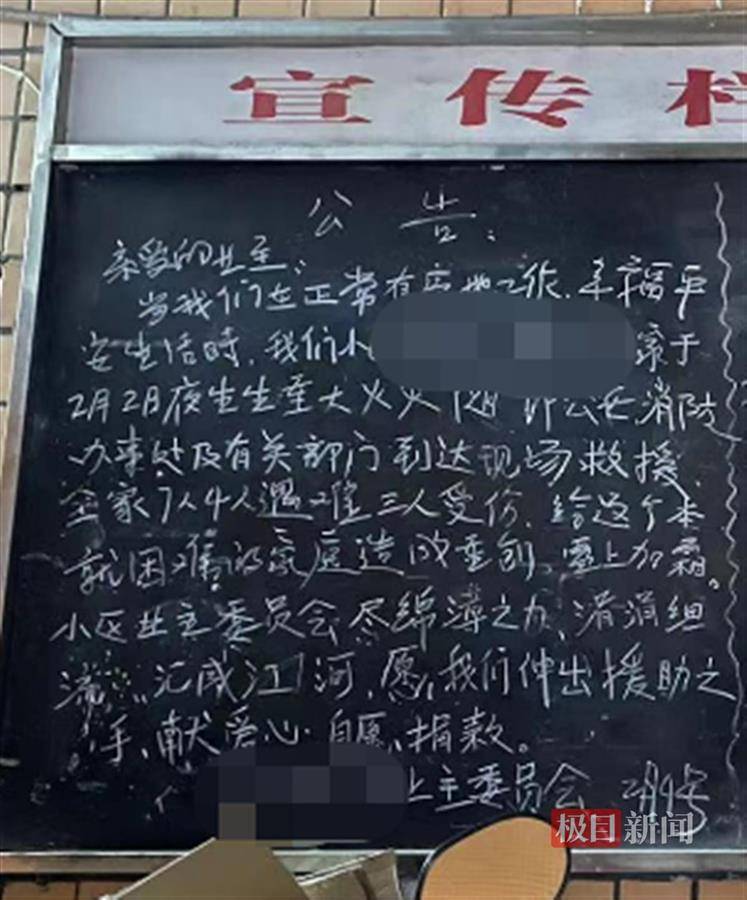 宣传栏
公告:
亲爱的业主:
当我们在正常有序地工作、幸福平
安生活时,我们小 家于
2月2日夜生生至大火 公安消防
办事处及有关部门到达现场救援,
全家7人4人遇难三人受伤,给这个本
就困难的家庭造成重创,雪上加霜。
小区业主委员会尽绵薄之力、涓涓细
流,汇成江河,愿我们伸出援助之
手、献爱心自愿捐款。
业主委员会 2月4号
极目新闻